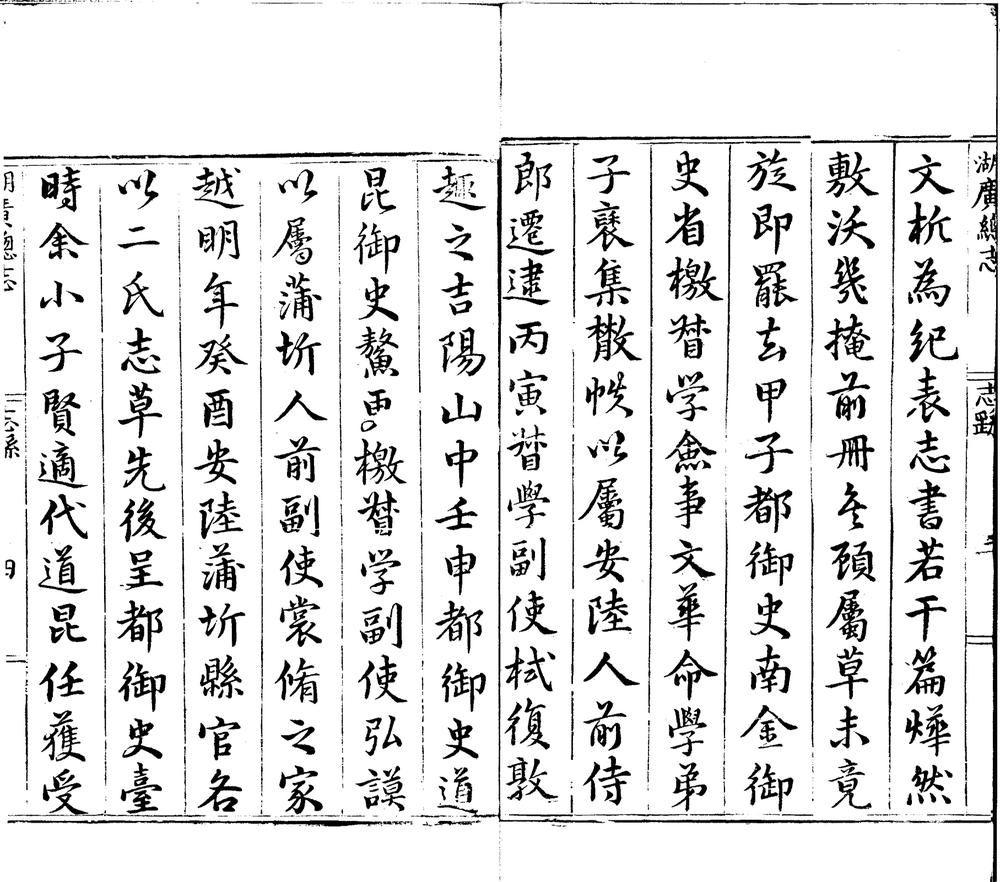 湖廣總志
志敘
文析為紀表志書若干篇燁然
敷沃幾掩前冊矣顧屬草未竟
旋即罷去甲子都御史南金御
史省檄督学僉事文華命學弟
子裒集散帙以屬安陸人前侍
郎遷逮丙寅督學副使栻復敦
趣之吉陽山中壬申都御史道
昆御史鰲更檄督学副使弘謨
以屬蒲圻人前副使裳脩之家
越明年癸酉安陸蒲圻縣官各
以二氏志草先後呈都御史臺
時余小子賢適代道昆任獲受
湖廣總志
四